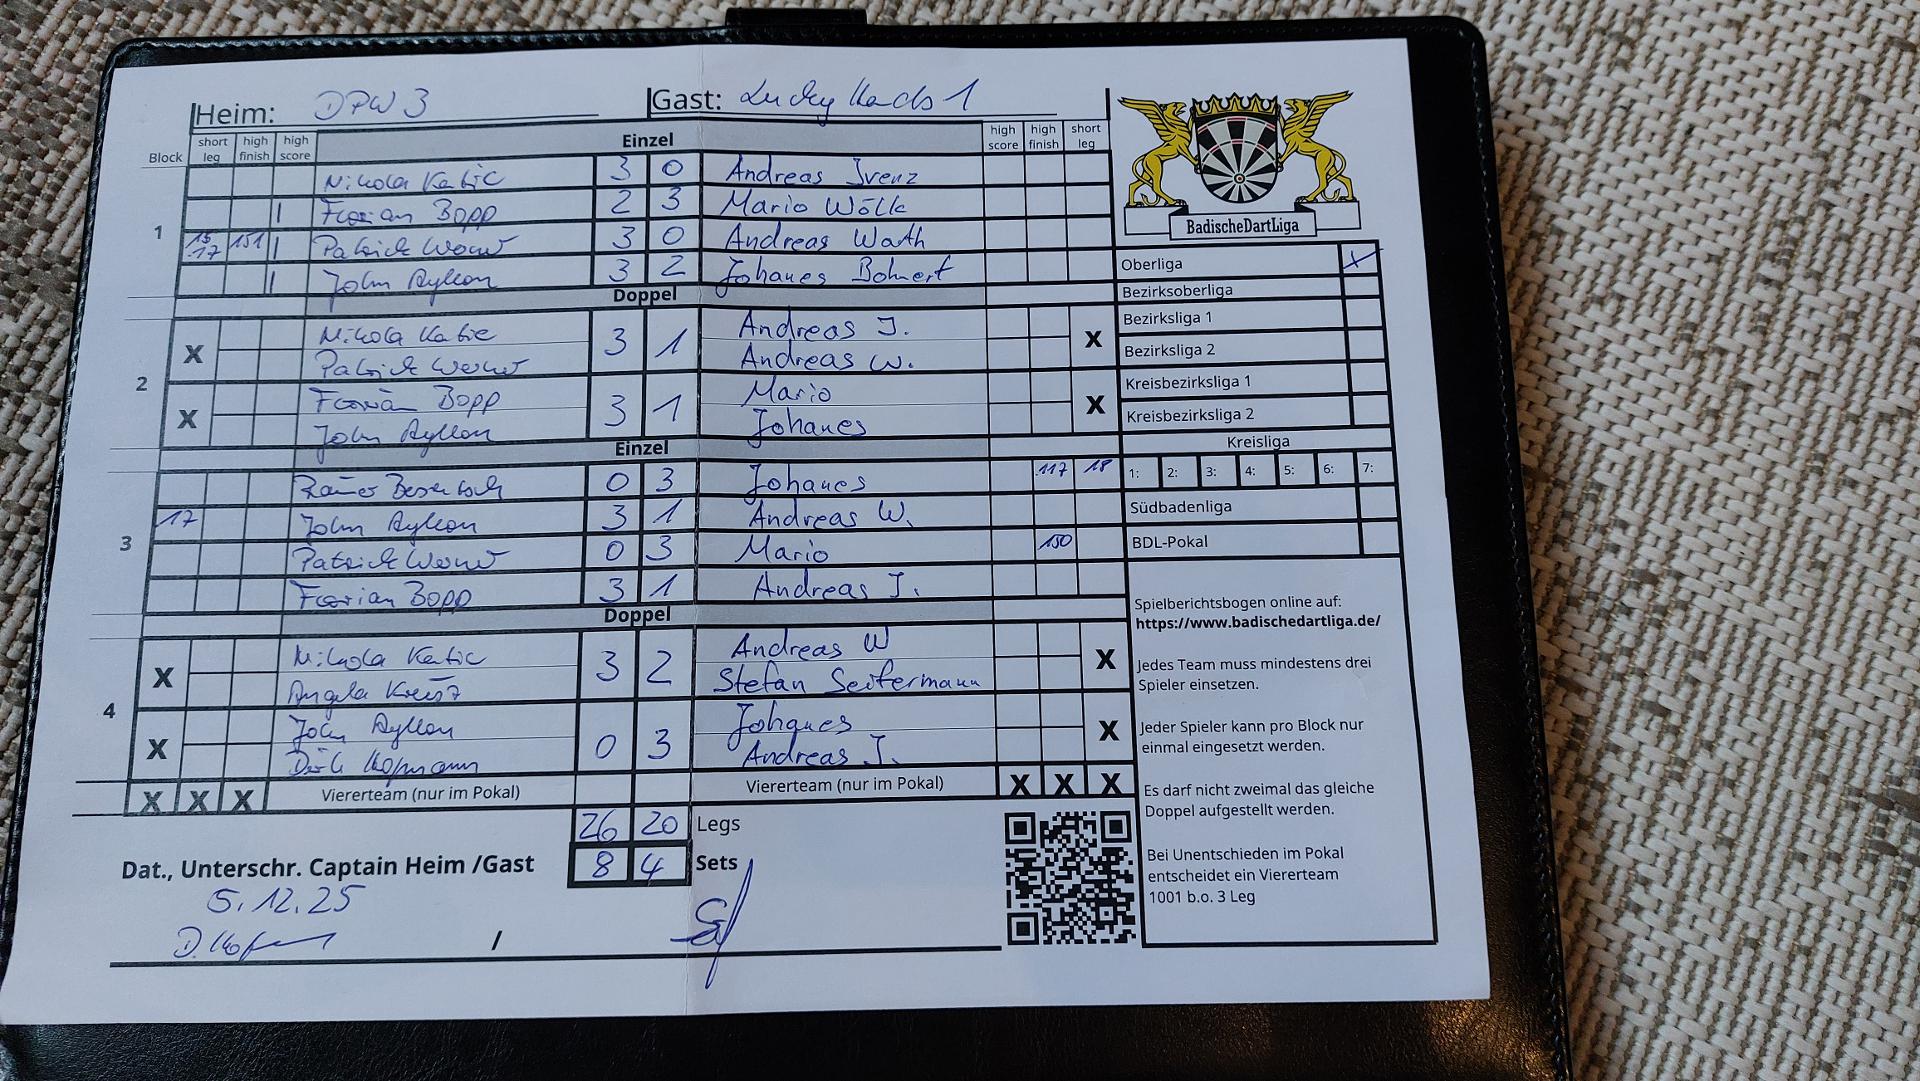 Heim: DPW 3 Gast: Lucky Kads 1
Block short leg high finish high score Einzel high score high finish short leg
1
Nikola Katic 3 0 Andreas Irenz
| Florian Bopp 2 3 Mario Wölk
15 17 151 | Patrick 3 0 Andreas Wath
| John 3 2 Johanes Bohnert
Doppel
2
X Nikola Katic 3 1 Andreas I. X
Patrick Andreas W.
X Florian Bopp 3 1 Mario X
John Johanes
Einzel
3
0 3 Johanes 117 18
17 John 3 1 Andreas W.
Patrick 0 3 Mario 150
Florian Bopp 3 1 Andreas I.
Doppel
4
X Nikola Katic 3 2 Andreas W X
Angela Stefan Seifermann
X John 0 3 Johanes X
Dirk Hofmann Andreas I.
X X X Viererteam (nur im Pokal) Viererteam (nur im Pokal) X X X
26 20 Legs
Dat., Unterschr. Captain Heim /Gast 8 4 Sets
5.12.25
/
BadischeDartLiga
Oberliga X
Bezirksoberliga
Bezirksliga 1
Bezirksliga 2
Kreisbezirksliga 1
Kreisbezirksliga 2
Kreisliga
1: 2: 3: 4: 5: 6: 7:
Südbadenliga
BDL-Pokal
Spielberichtsbogen online auf:
https://www.badischedartliga.de/
Jedes Team muss mindestens drei
Spieler einsetzen.
Jeder Spieler kann pro Block nur
einmal eingesetzt werden.
Es darf nicht zweimal das gleiche
Doppel aufgestellt werden.
Bei Unentschieden im Pokal
entscheidet ein Viererteam
1001 b.o. 3 Leg